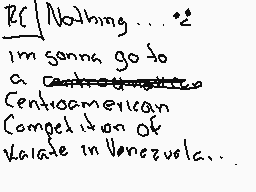 RE| Nothing...
im gonna go to
a
Centroamerican
Competition of
Karate in Venezuela...